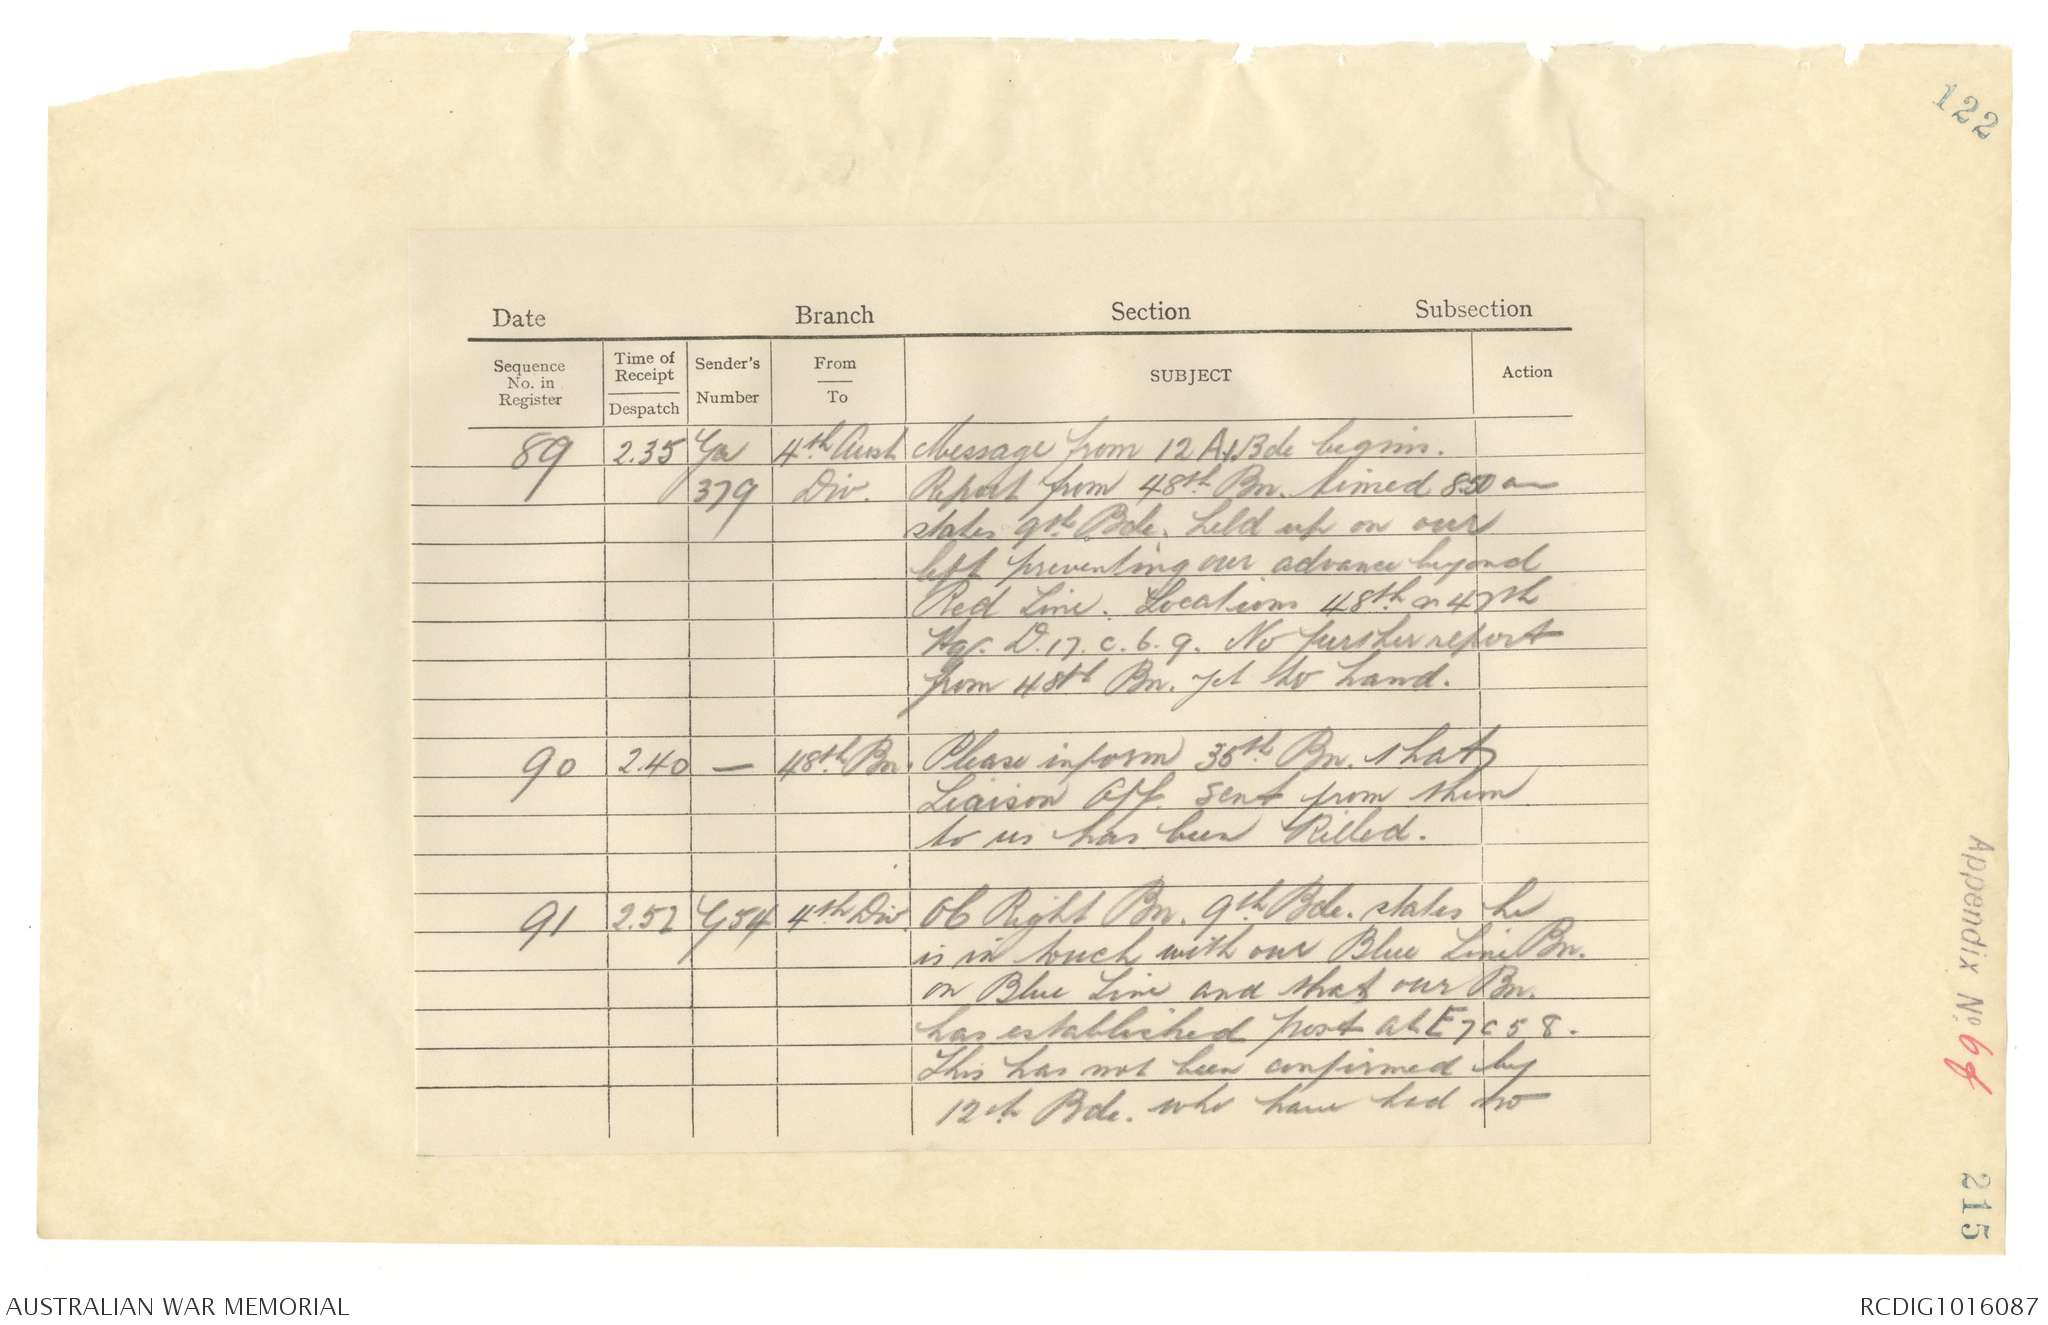 122
Date Branch Section Subsection
Sequence No. in Register
Time of Receipt
Despatch
Sender's Number
From
To
SUBJECT
Action
89 2.35 Ga 4th Aust Message from 12 A.I.Bde begins.
379 Div. Report from 48th Bn. timed 8.50 am
states 9th Bde. held up on our
left preventing our advance beyond
Red Line. Locations 48th & 47th
Hqs. D.17.c.6.9. No further report
from 48th Bn. yet to hand.
90 2.40 — 48th Bn. Please inform 35th Bn. that
Liaison Off. sent from them
to us has been killed.
91 2.52 G54 4th Div. OC Right Bn. 9th Bde. states he
is in touch with our Blue Line Bn.
on Blue Line and that our Bn.
has established post at E7c58.
This has not been confirmed by
12th Bde. who have had no
Appendix No
215
AUSTRALIAN WAR MEMORIAL
RCDIG1016087